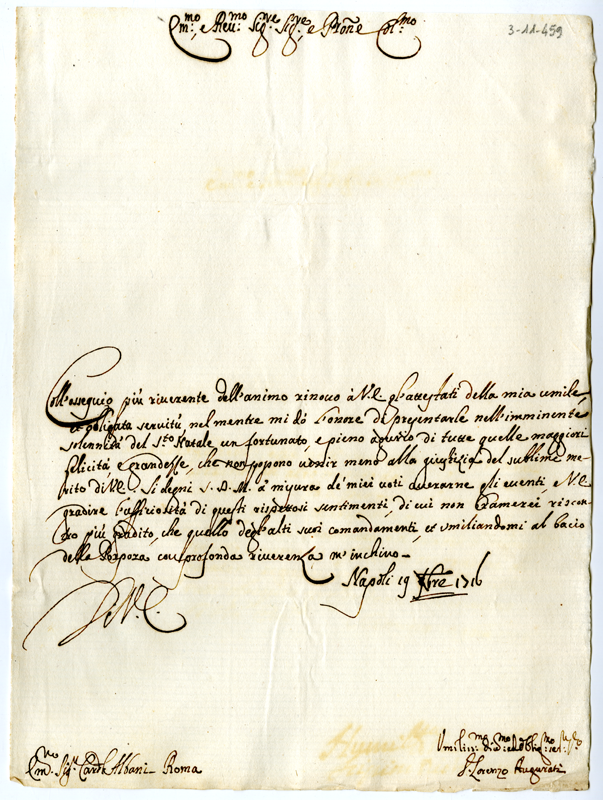 Em.mo, e Reu.mo Sig.re Sig.re, e Prōne Col.mo
3-11-459
Coll'ossequio più riuerente dell'animo rinouo à V.E. gl'attestati della mia umile,
et obligata seruitù, nel mentre mi dò l'onore di presentarle nell'imminente
solennità del S.to Natale un fortunato, e pieno di tutte quelle maggiori
felicità, e grandesse, che non possono uenir meno alla giustizia del sublime me-
rito di V.E. Si degni S.D.M. à misura de' miei uoti auerarne gli euenti, e V.E.
gradire l'uffiziosità di questi rispetosi sentimenti, di cui non bramerei riscon-
tro più gradito, che quello degl'alti suoi comandamenti, et umiliandomi al bacio
della Porpora con profonda riuerenza m'inchino -
Napoli 19 Xbre 1716
Di V.E.
Em.mo Sig.r Card.le Albani Roma
Umilis.mo diu.mo et oblig.mo ser.re
Lorenzo